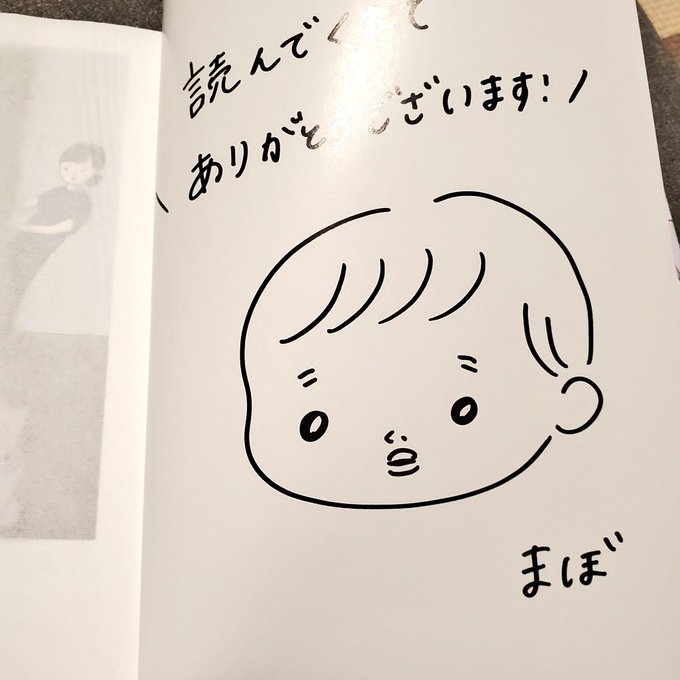 読んでくて
\ありがとございます! /
まぼ